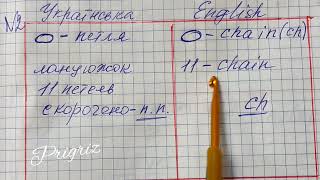 №2 Українська English
О - петля О - chain (ch)
ланцюжок 11 - chain
11 петель
скорочено - п.п. ch
Prigriz